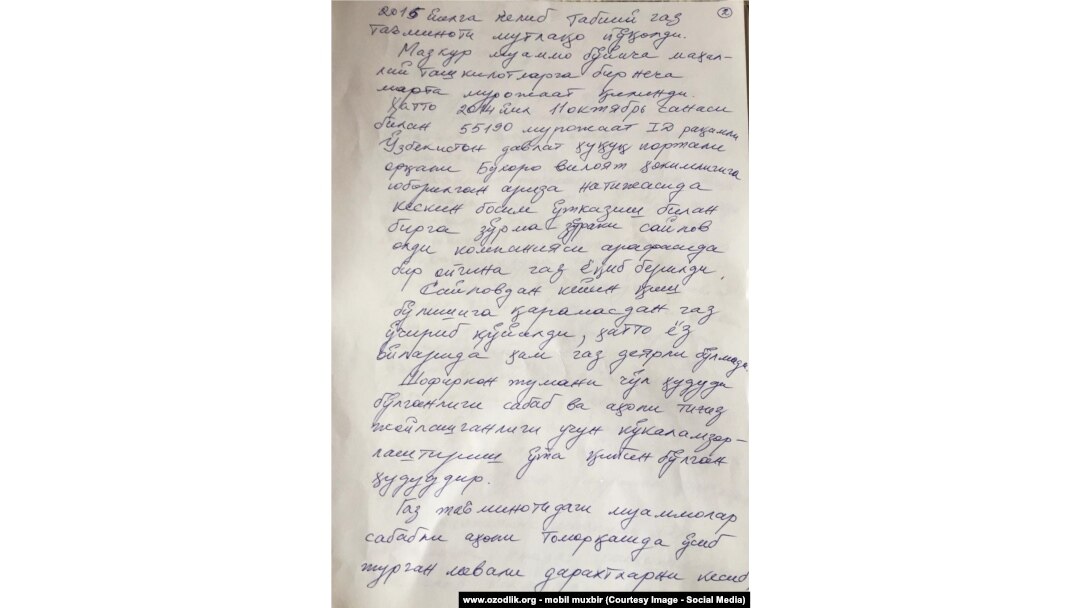 2015 йилга келиб табиий газ
②
таъминоти мутлақо йўқолди.
Мазкур муаммо бўйича маҳал-
лий ташкилотларга бир неча
марта мурожаат қилинди.
Ҳатто 2014 йил 11 октябрь санаси
билан 55190 мурожаат ID рақамли
Ўзбекистон давлат ҳуқуқ портали
орқали Бухоро вилоят ҳокимлигига
юборилган ариза натижасида
кескин босим ўтказиш билан
бирга зўрма-зўраки сайлов
олди компанияси арафасида
бир ойгина газ ёқиб берилди.
Сайловдан кейин қиш
бўлишига қарамасдан газ
ўчириб қўйилди, ҳатто ёз
ойларида ҳам газ деярли бўлмади.
Шофиркон тумани чўл ҳудуди
бўлганлиги сабаб ва аҳоли тиғиз
жойлашганлиги учун кўкаламзор-
лаштириш ўта қийин бўлган
ҳудуддир.
Газ таъминотидаги муаммолар
сабабли аҳоли томорқасида ўсиб
турган мевали дарахтларни кесиб,
www.ozodlik.org - mobil muxbir (Courtesy Image - Social Media)